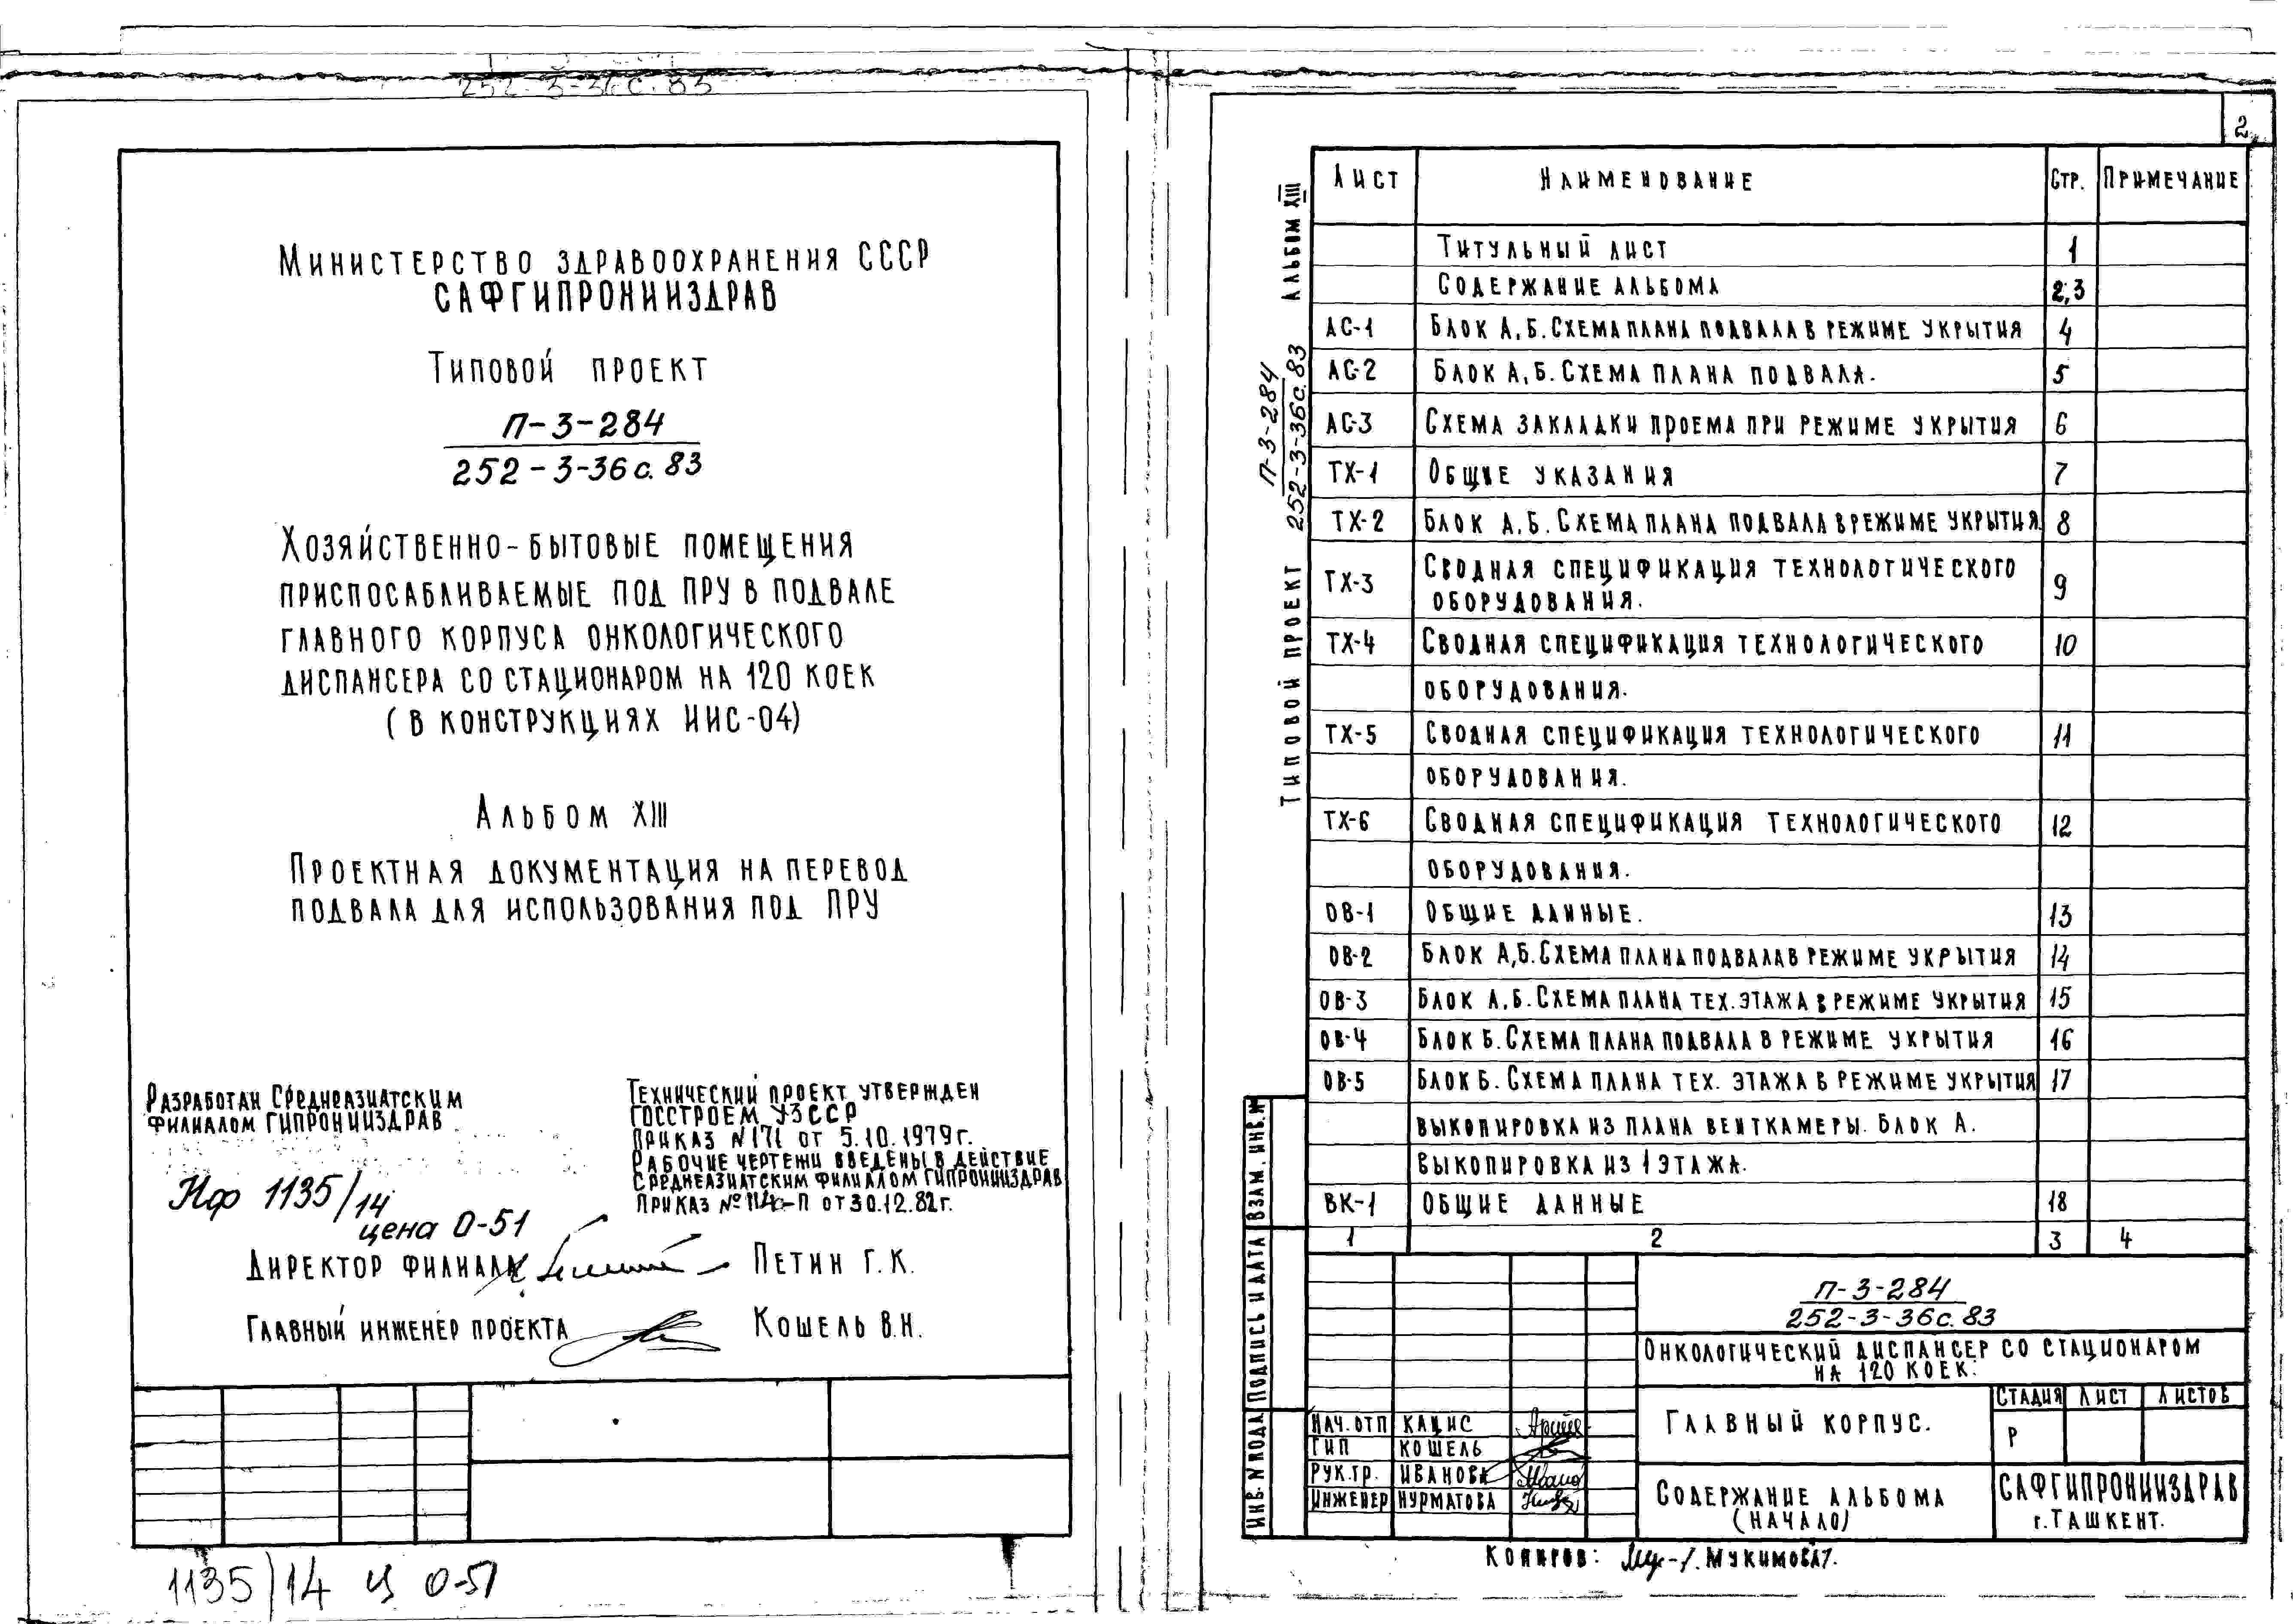 252-3-36с.83
Министерство здравоохранения СССР
САФГИПРОНИИЗДРАВ
Типовой проект
П-3-284
252-3-36с.83
Хозяйственно-бытовые помещения
приспосабливаемые под ПРУ в подвале
главного корпуса онкологического
диспансера со стационаром на 120 коек
(в конструкциях ИИС-04)
Альбом XIII
Проектная документация на перевод
подвала для использования под ПРУ
Разработан Среднеазиатским
филиалом ГИПРОНИИЗДРАВ
Технический проект утвержден
ГОССТРОЕМ УЗССР
приказ N171 от 5.10.1979г.
Рабочие чертежи введены в действие
Среднеазиатским филиалом ГИПРОНИИЗДРАВ
приказ № -П от 30.12.82г.
Инф 1135/14
цена 0-51
Директор филиала Петин Г.К.
Главный инженер проекта Кошель В.Н.
1135/14 ц 0-51
2
Типовой проект П-3-284 252-3-36с.83 Альбом XIII
Лист Наименование Стр. Примечание
Титульный лист 1
Содержание альбома 2,3
АС-1 Блок А,Б. Схема плана подвала в режиме укрытия 4
АС-2 Блок А,Б. Схема плана подвала. 5
АС-3 Схема закладки проема при режиме укрытия 6
ТХ-1 Общие указания 7
ТХ-2 Блок А,Б. Схема плана подвала в режиме укрытия 8
ТХ-3 Сводная спецификация технологического 9
оборудования.
ТХ-4 Сводная спецификация технологического 10
оборудования.
ТХ-5 Сводная спецификация технологического 11
оборудования.
ТХ-6 Сводная спецификация технологического 12
оборудования.
ОВ-1 Общие данные. 13
ОВ-2 Блок А,Б. Схема плана подвала в режиме укрытия 14
ОВ-3 Блок А,Б. Схема плана тех. этажа в режиме укрытия 15
ОВ-4 Блок Б. Схема плана подвала в режиме укрытия 16
ОВ-5 Блок Б. Схема плана тех. этажа в режиме укрытия 17
Выкопировка из плана венткамеры. Блок А.
Выкопировка из 1 этажа.
ВК-1 Общие данные 18
1 2 3 4
Инв. N подл Подпись и дата Взам. инв. N
П-3-284
252-3-36с.83
Онкологический диспансер со стационаром
на 120 коек.
Главный корпус.
Стадия Лист Листов
Р
Нач. отп Кацис
ГИП Кошель
Рук.гр. Иванова
Инженер Нурматова
Содержание альбома
(начало)
САФГИПРОНИИЗДРАВ
г. Ташкент.
Копиров: Мукимова